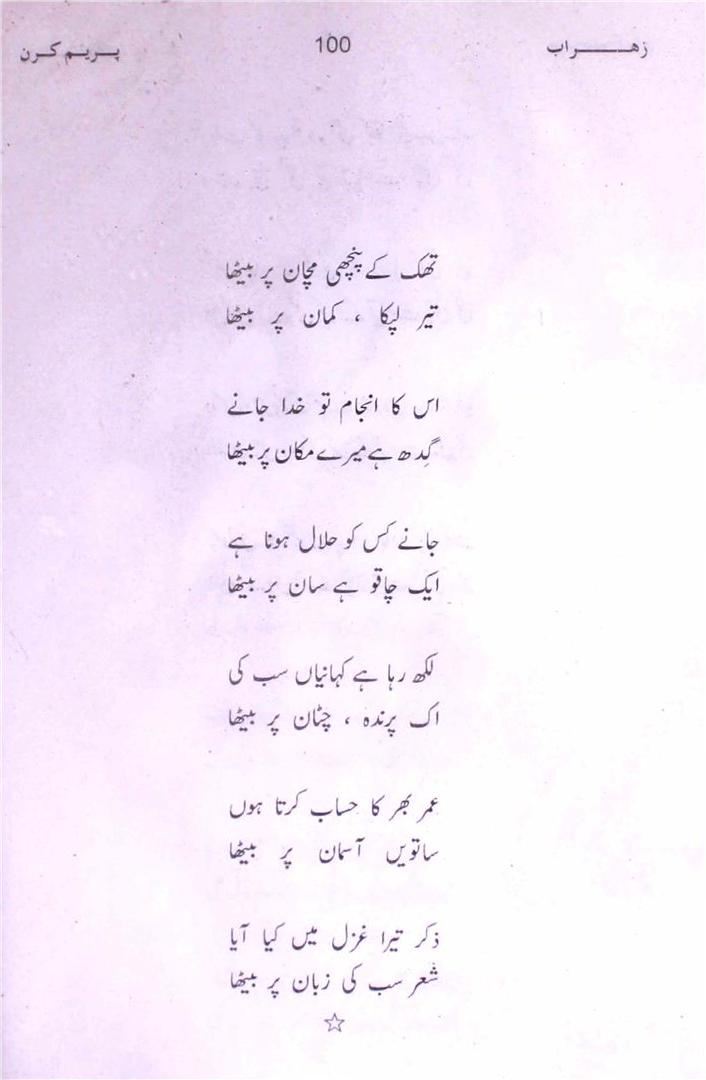 زہراب 100 پریم کرن
تھک کے پنچھی مچان پر بیٹھا
تیر لپکا ، کمان پر بیٹھا
اس کا انجام تو خدا جانے
گِدھ ہے میرے مکان پر بیٹھا
جانے کس کو حلال ہونا ہے
ایک چاقو ہے سان پر بیٹھا
لکھ رہا ہے کہانیاں سب کی
اک پرندہ ، چٹان پر بیٹھا
عمر بھر کا حساب کرتا ہوں
ساتویں آسمان پر بیٹھا
ذکر تیرا غزل میں کیا آیا
شعر سب کی زبان پر بیٹھا
☆